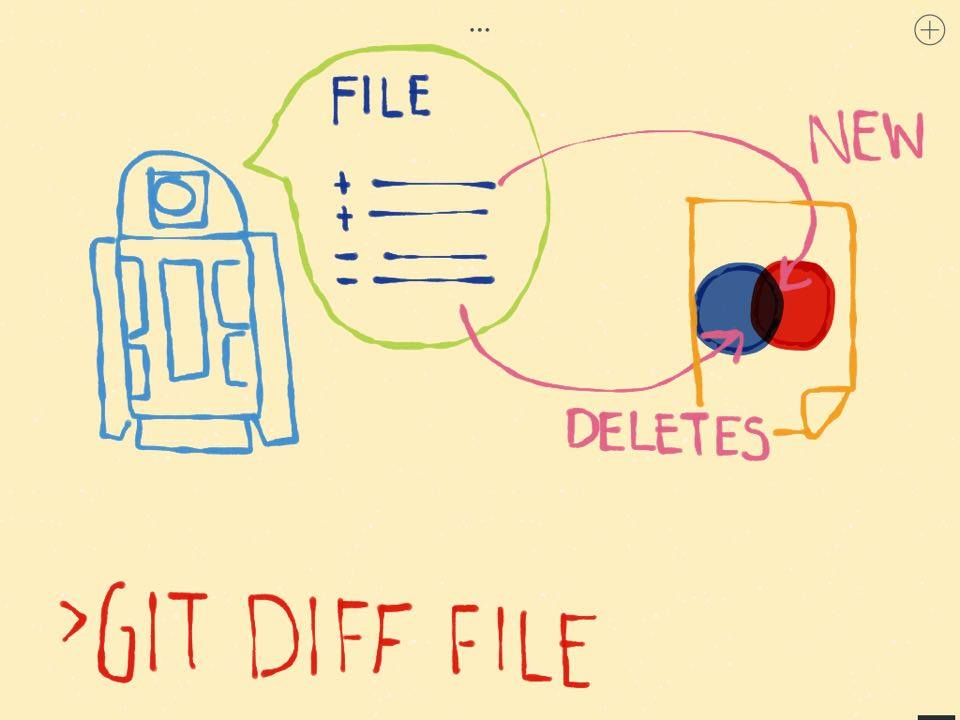 FILE
+
+
-
-
NEW
DELETES
>GIT DIFF FILE